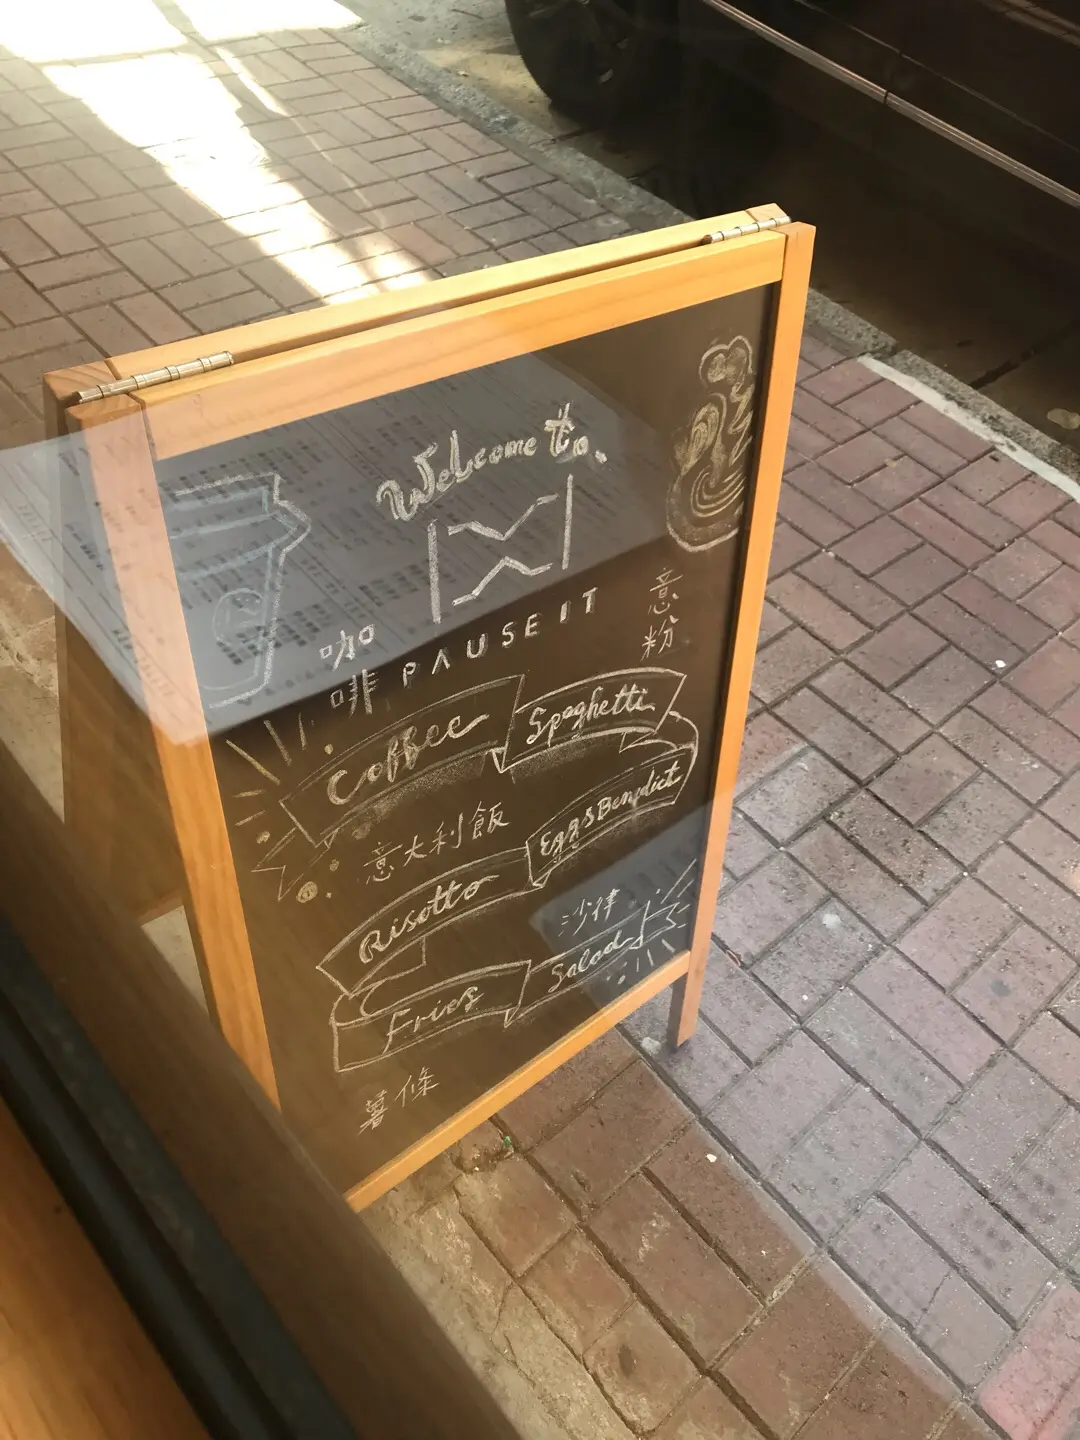 Welcome to
PAUSE IT
咖啡
意粉
Coffee
Spaghetti
意大利飯
Eggs Benedict
Risotto
沙律
Salad
Fries
薯條